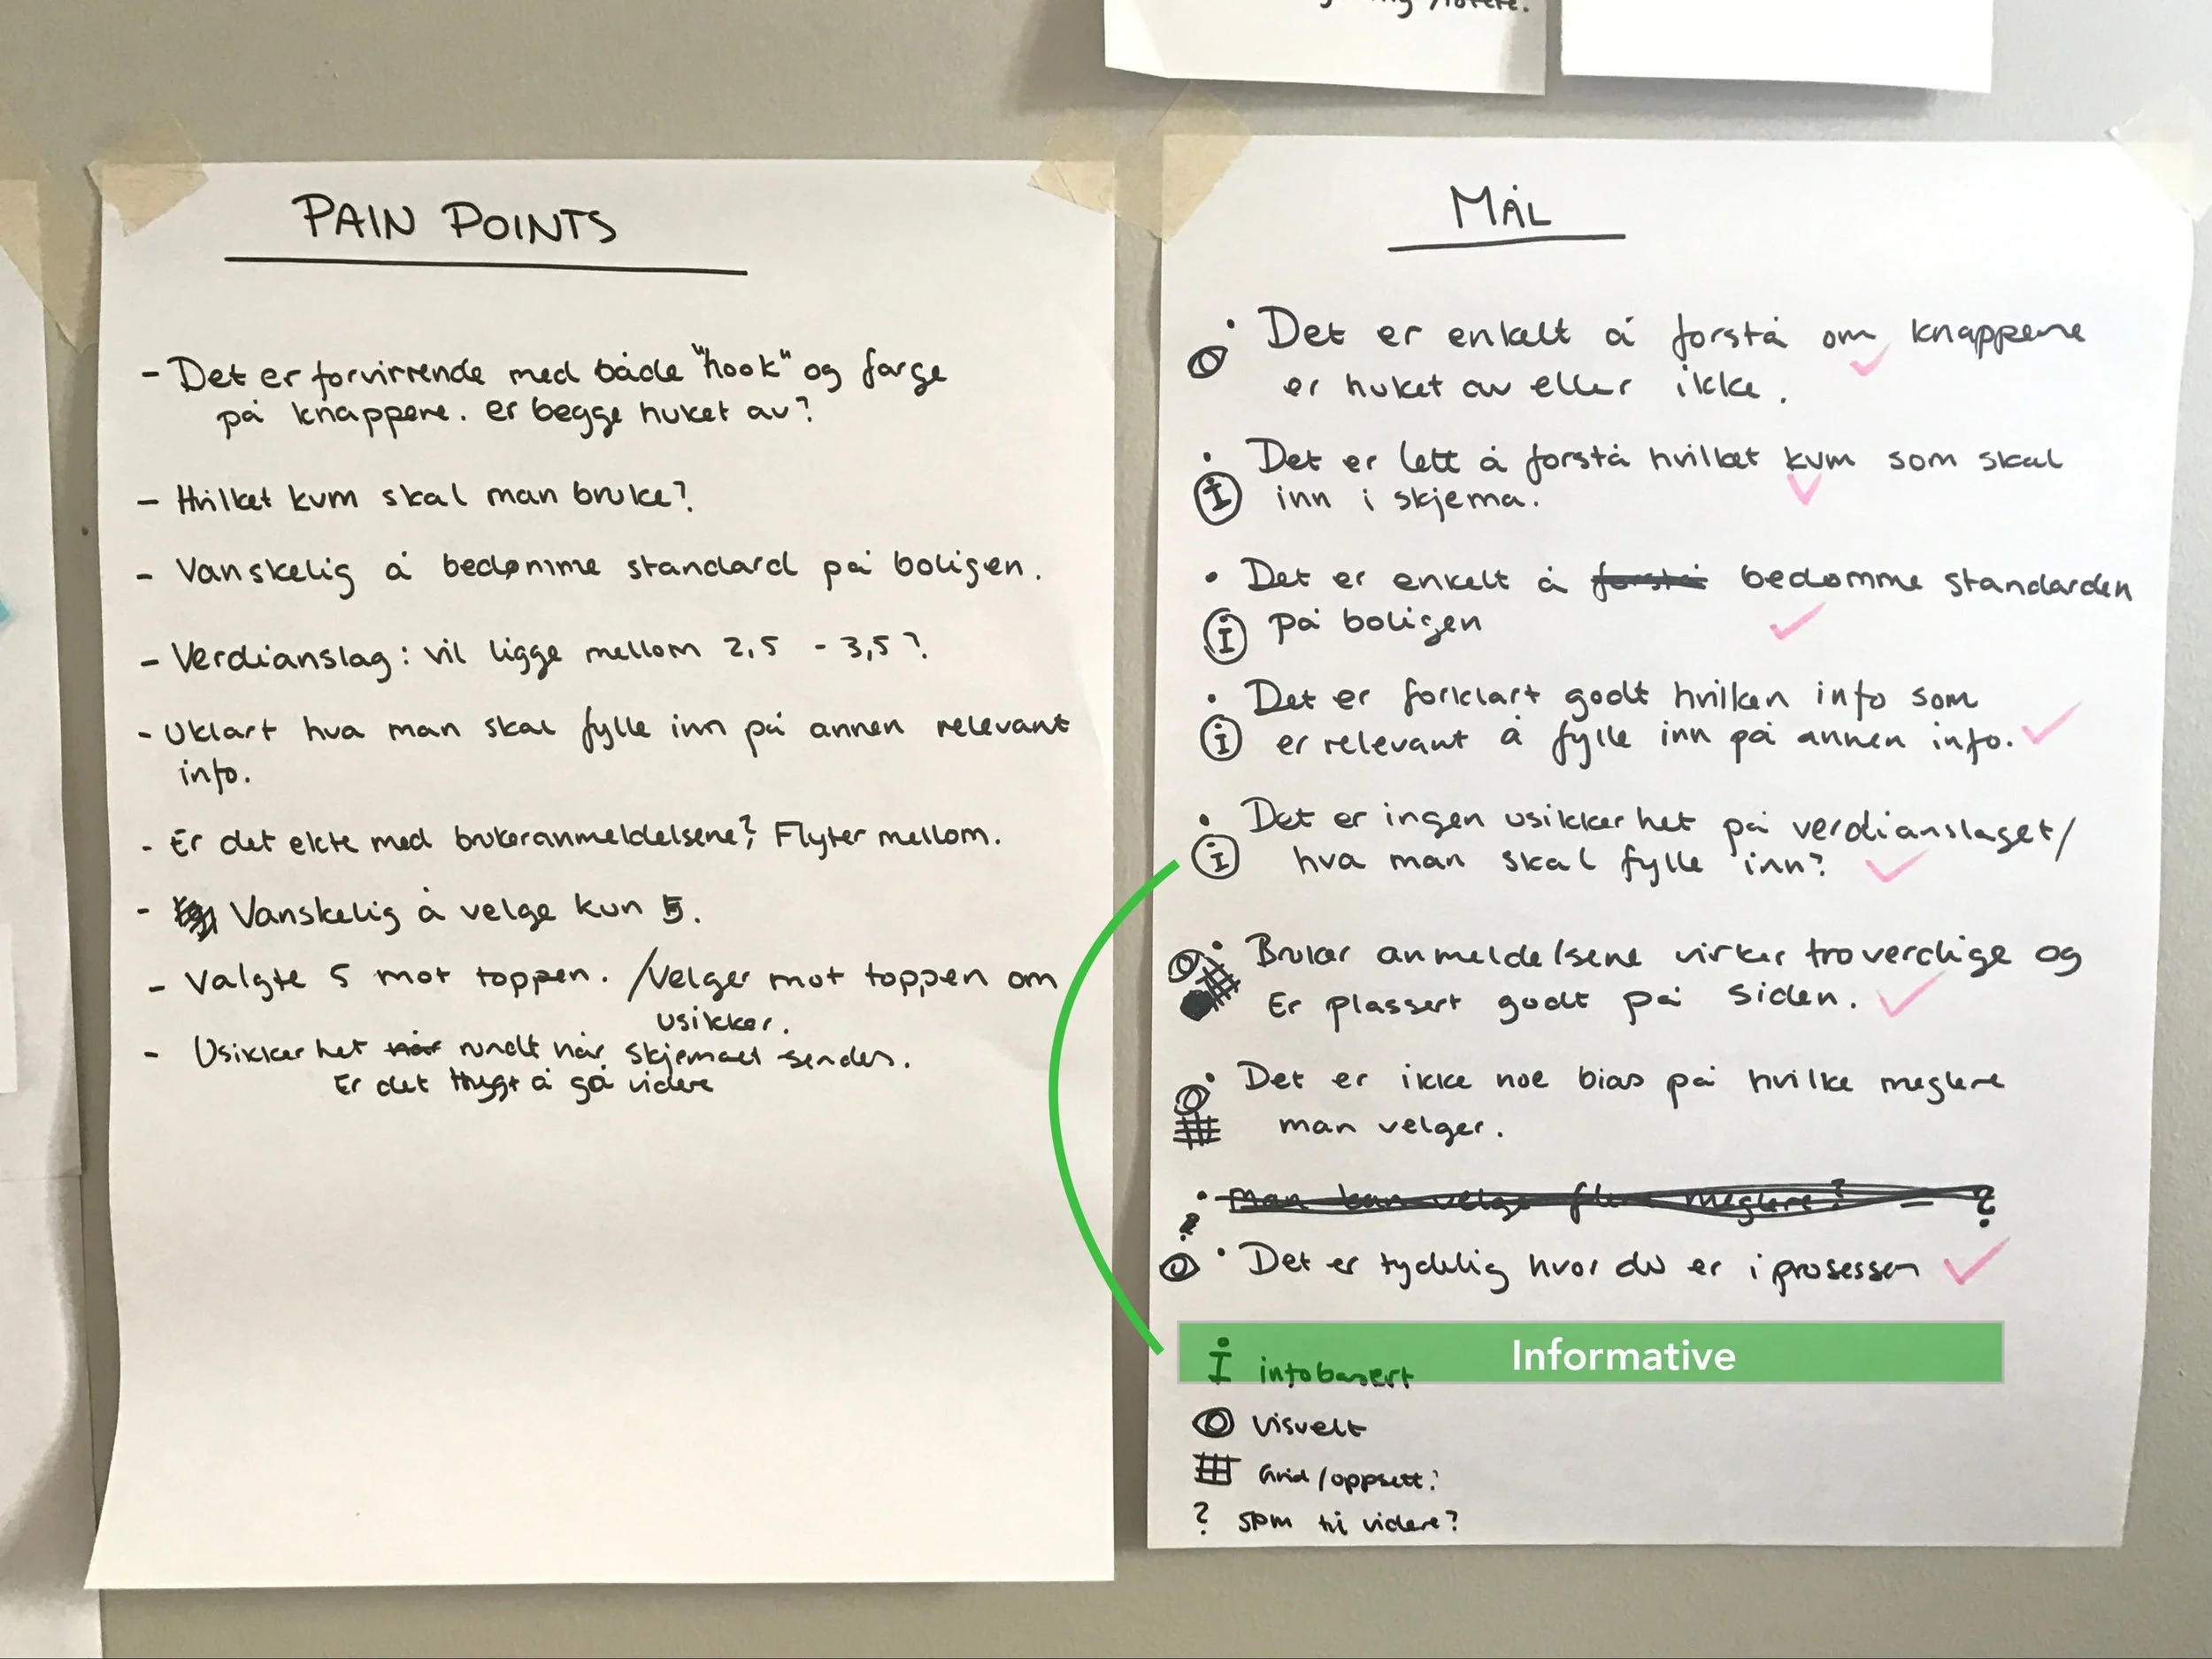 PAIN POINTS
- Det er forvirrende med både "hook" og farge
på knappene. er begge huket av?
- Hvilket kvm skal man bruke?
- Vanskelig å bedømme standard på boligen.
- Verdianslag: vil ligge mellom 2,5 - 3,5?
- Uklart hva man skal fylle inn på annen relevant
info.
- Er det ekte med brukeranmeldelsene? Flyter mellom.
- Vanskelig å velge kun 5.
- Valgte 5 mot toppen. /Velger mot toppen om
usikker.
- Usikkerhet når rundt når skjemaet sendes.
Er det trygt å gå videre
MÅL
• Det er enkelt å forstå om knappene
er huket av eller ikke.
• Det er lett å forstå hvilket kvm som skal
i inn i skjema.
• Det er enkelt å forstå bedømme standarden
i på boligen
• Det er forklart godt hvilken info som
i er relevant å fylle inn på annen info.
• Det er ingen usikkerhet på verdianslaget/
i hva man skal fylle inn?
• Bruker anmeldelsene virker troverdige og
Er plassert godt på siden.
• Det er ikke noe bias på hvilke meglere
man velger.
• Man kan velge flere meglere? - ?
• Det er tydelig hvor du er i prosessen
i infobasert
Informative
Visuelt
Grid/oppsett:
? spm til videre?